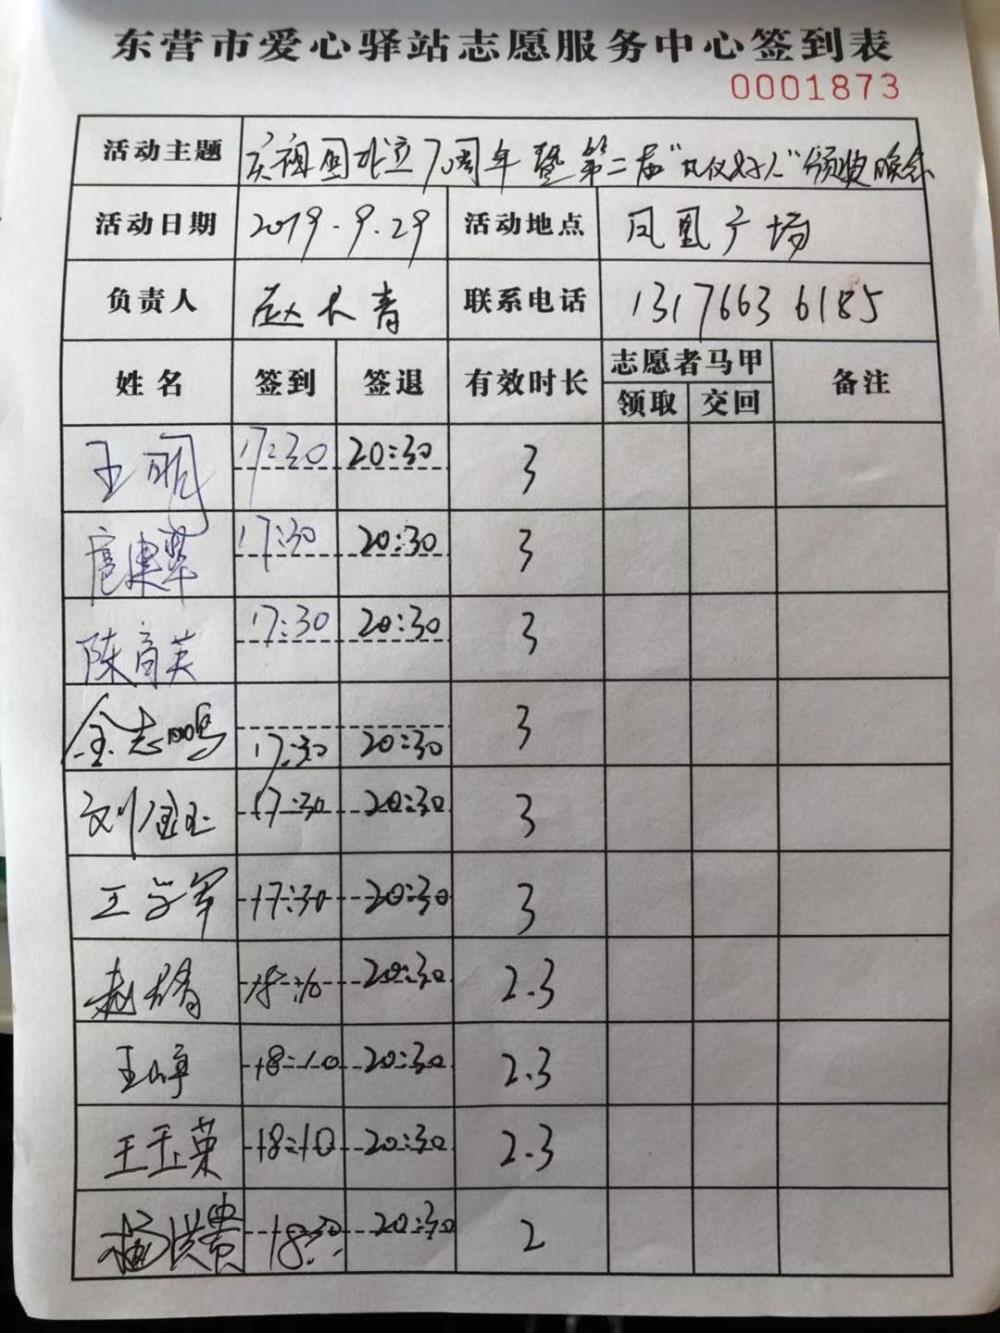 东营市爱心驿站志愿服务中心签到表
0001873
活动主题 庆祝国成立70周年暨第二届"凡仪好人"颁奖晚会
活动日期 2019.9.29 活动地点 凤凰广场
负责人 赵长青 联系电话 13176636185
姓名 签到 签退 有效时长 志愿者马甲 备注
领取 交回
王 17:30 20:30 3
扈建翠 17:30 20:30 3
陈育英 17:30 20:30 3
金志鸣 17:30 20:30 3
刘金玉 17:30 20:30 3
王学军 17:30 20:30 3
赵 18:10 20:30 2.3
王 18:10 20:30 2.3
王玉英 18:10 20:30 2.3
杨洪贵 18:30 20:30 2